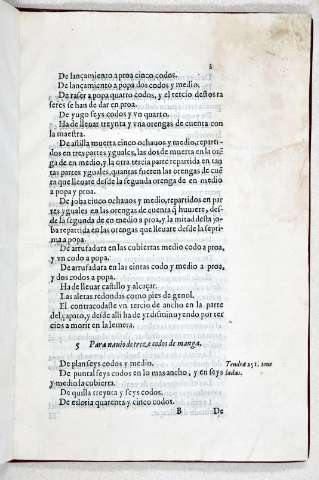 2
De lançamiento a proa cinco codos.
De lançamiento a popa dos codos y medio.
De raser a popa quatro codos, y el tercio destos ra
seres se han de dar en proa.
De yugo seys codos y vn quarto.
Ha de lleuar treynta y vna orengas de cuenta con
la maestra.
De astilla muerta cinco ochauos y medio, reparti-
dos en tres partes yguales, las dos de muerta en la orẽ
ga de en medio, y la otra tercia parte repartida en tan
tas partes yguales, quantas fueren las orengas de cuẽ
ta que lleuare desde la segunda orenga de en medio
a popa y proa.
De joba cinco ochauos y medio, repartidos en par
tes yguales en las orengas de cuenta q̃ huuiere, des-
de la segunda de en medio a proa, y la mitad desta jo-
ba repartida en las orengas que lleuare desde la septi
ma a popa.
De arrufadura en las cubiertas medio codo a proa,
y vn codo a popa.
De arrufadura en las cintas codo y medio a proa,
y dos codos a popa.
Ha de lleuar castillo y alcaçar.
Las aletas redondas como pies de genol.
El contracodaste vn tercio de ancho en la parte
del çapato, y desde alli ha de yr disminuyendo por ter
cios a morir en la lemera.
5 Para nauio de treze codos de manga.
De plan seys codos y medio.
Tendra 251. tone
De puntal seys codos en lo mas ancho, y en seys
ladas.
y medio la cubierta.
De quilla treynta y seys codos.
De esloria quarenta y cinco codos.
B De